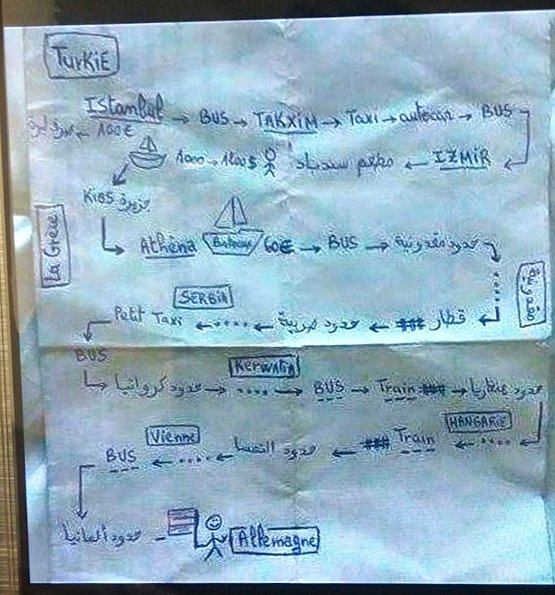 TurKiE
IStanbul → BUS → TAKXIM → Taxi → autocar → BUS
100€
IZMIR ← مطعم سندباد 1000 → 1200$
جزيرة KIOS
La Grece
Athéna Bateau 60€ → BUS → حدود مقدونية
مقدونية
SERBIA
قطار ### ← حدود صربية ← .... ← Petit Taxi
BUS
KERWATIA
حدود كرواتيا → .... → BUS → Train ### → حدود هنغاريا
HANGARIE
Vienne
.... ← Train ### ← حدود النمسا ← .... ← BUS
حدود ألمانيا
Allemagne